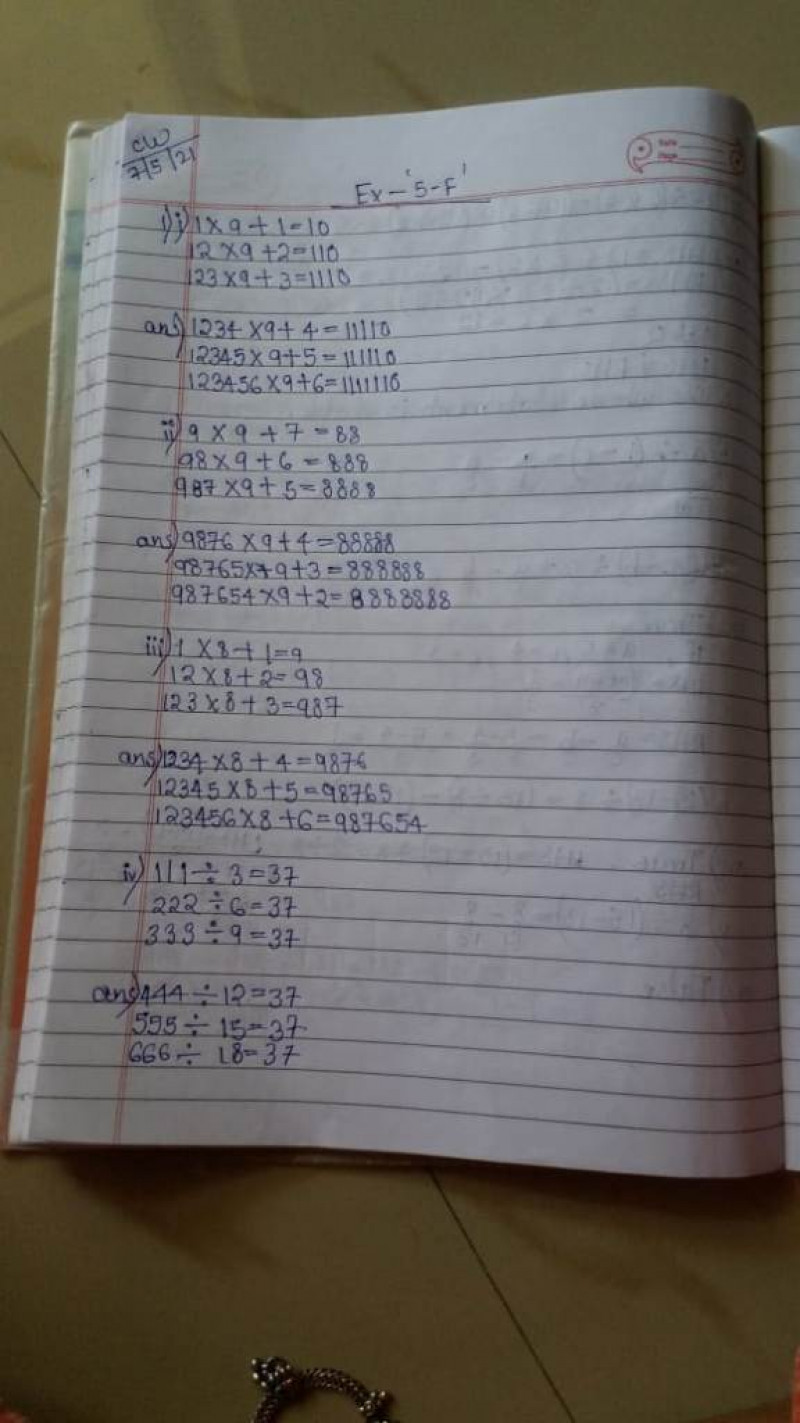 CW
7/5/21
Date
Page
Ex - '5-F'
1) i) 1 × 9 + 1 = 10
12 × 9 + 2 = 110
123 × 9 + 3 = 1110
ans) 1234 × 9 + 4 = 11110
12345 × 9 + 5 = 111110
123456 × 9 + 6 = 1111110
ii) 9 × 9 + 7 = 88
98 × 9 + 6 = 888
987 × 9 + 5 = 8888
ans) 9876 × 9 + 4 = 88888
98765 × 9 + 3 = 888888
987654 × 9 + 2 = 8888888
iii) 1 × 8 + 1 = 9
12 × 8 + 2 = 98
123 × 8 + 3 = 987
ans) 1234 × 8 + 4 = 9876
12345 × 8 + 5 = 98765
123456 × 8 + 6 = 987654
iv) 111 ÷ 3 = 37
222 ÷ 6 = 37
333 ÷ 9 = 37
ans) 444 ÷ 12 = 37
555 ÷ 15 = 37
666 ÷ 18 = 37